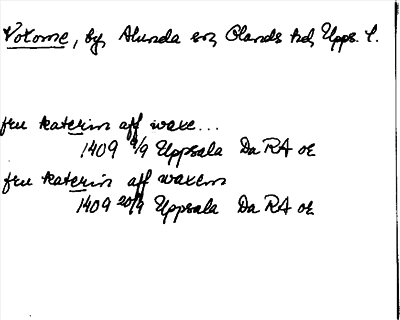 Votome, by, Alunda sn, Olands hd, Upps. l.
fru katerin aff waxe...
1409 9/9 Uppsala Da RA or
fru katerin aff waxem
1409 20/9 Uppsala Da RA or